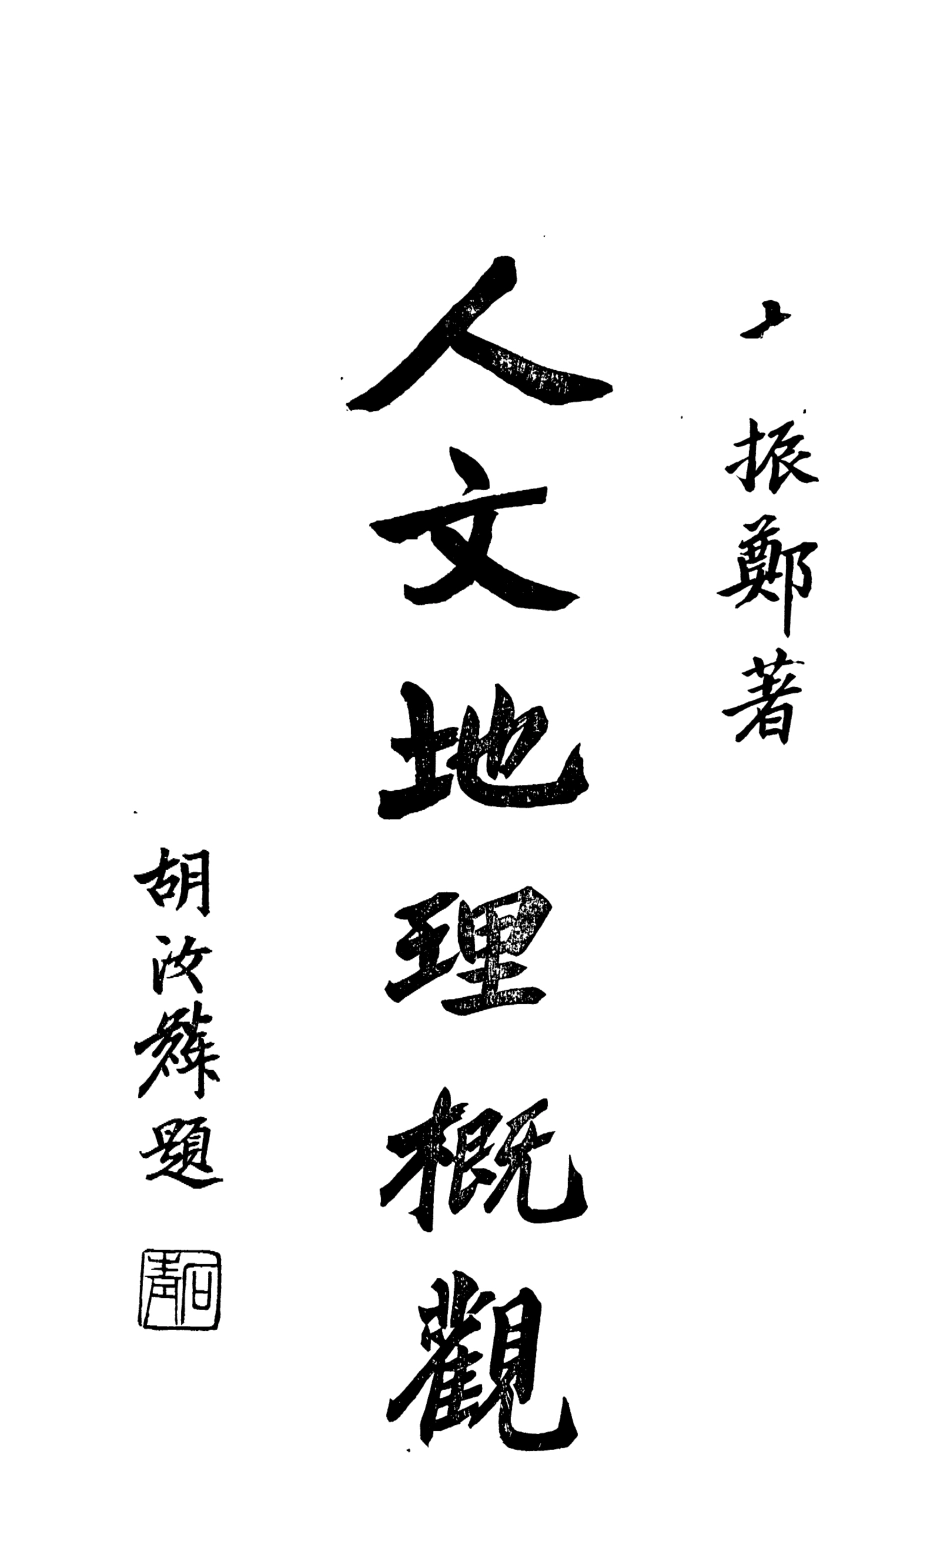 振鄭著
人文地理概觀
胡汝麟題
石青